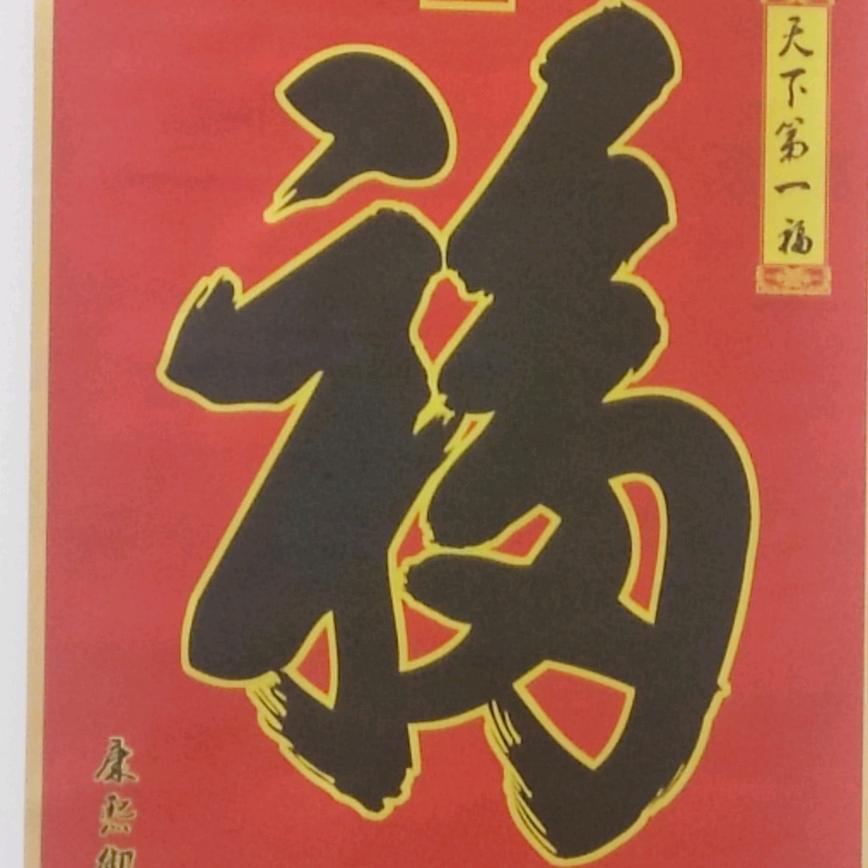 天下第一福
福
康熙御